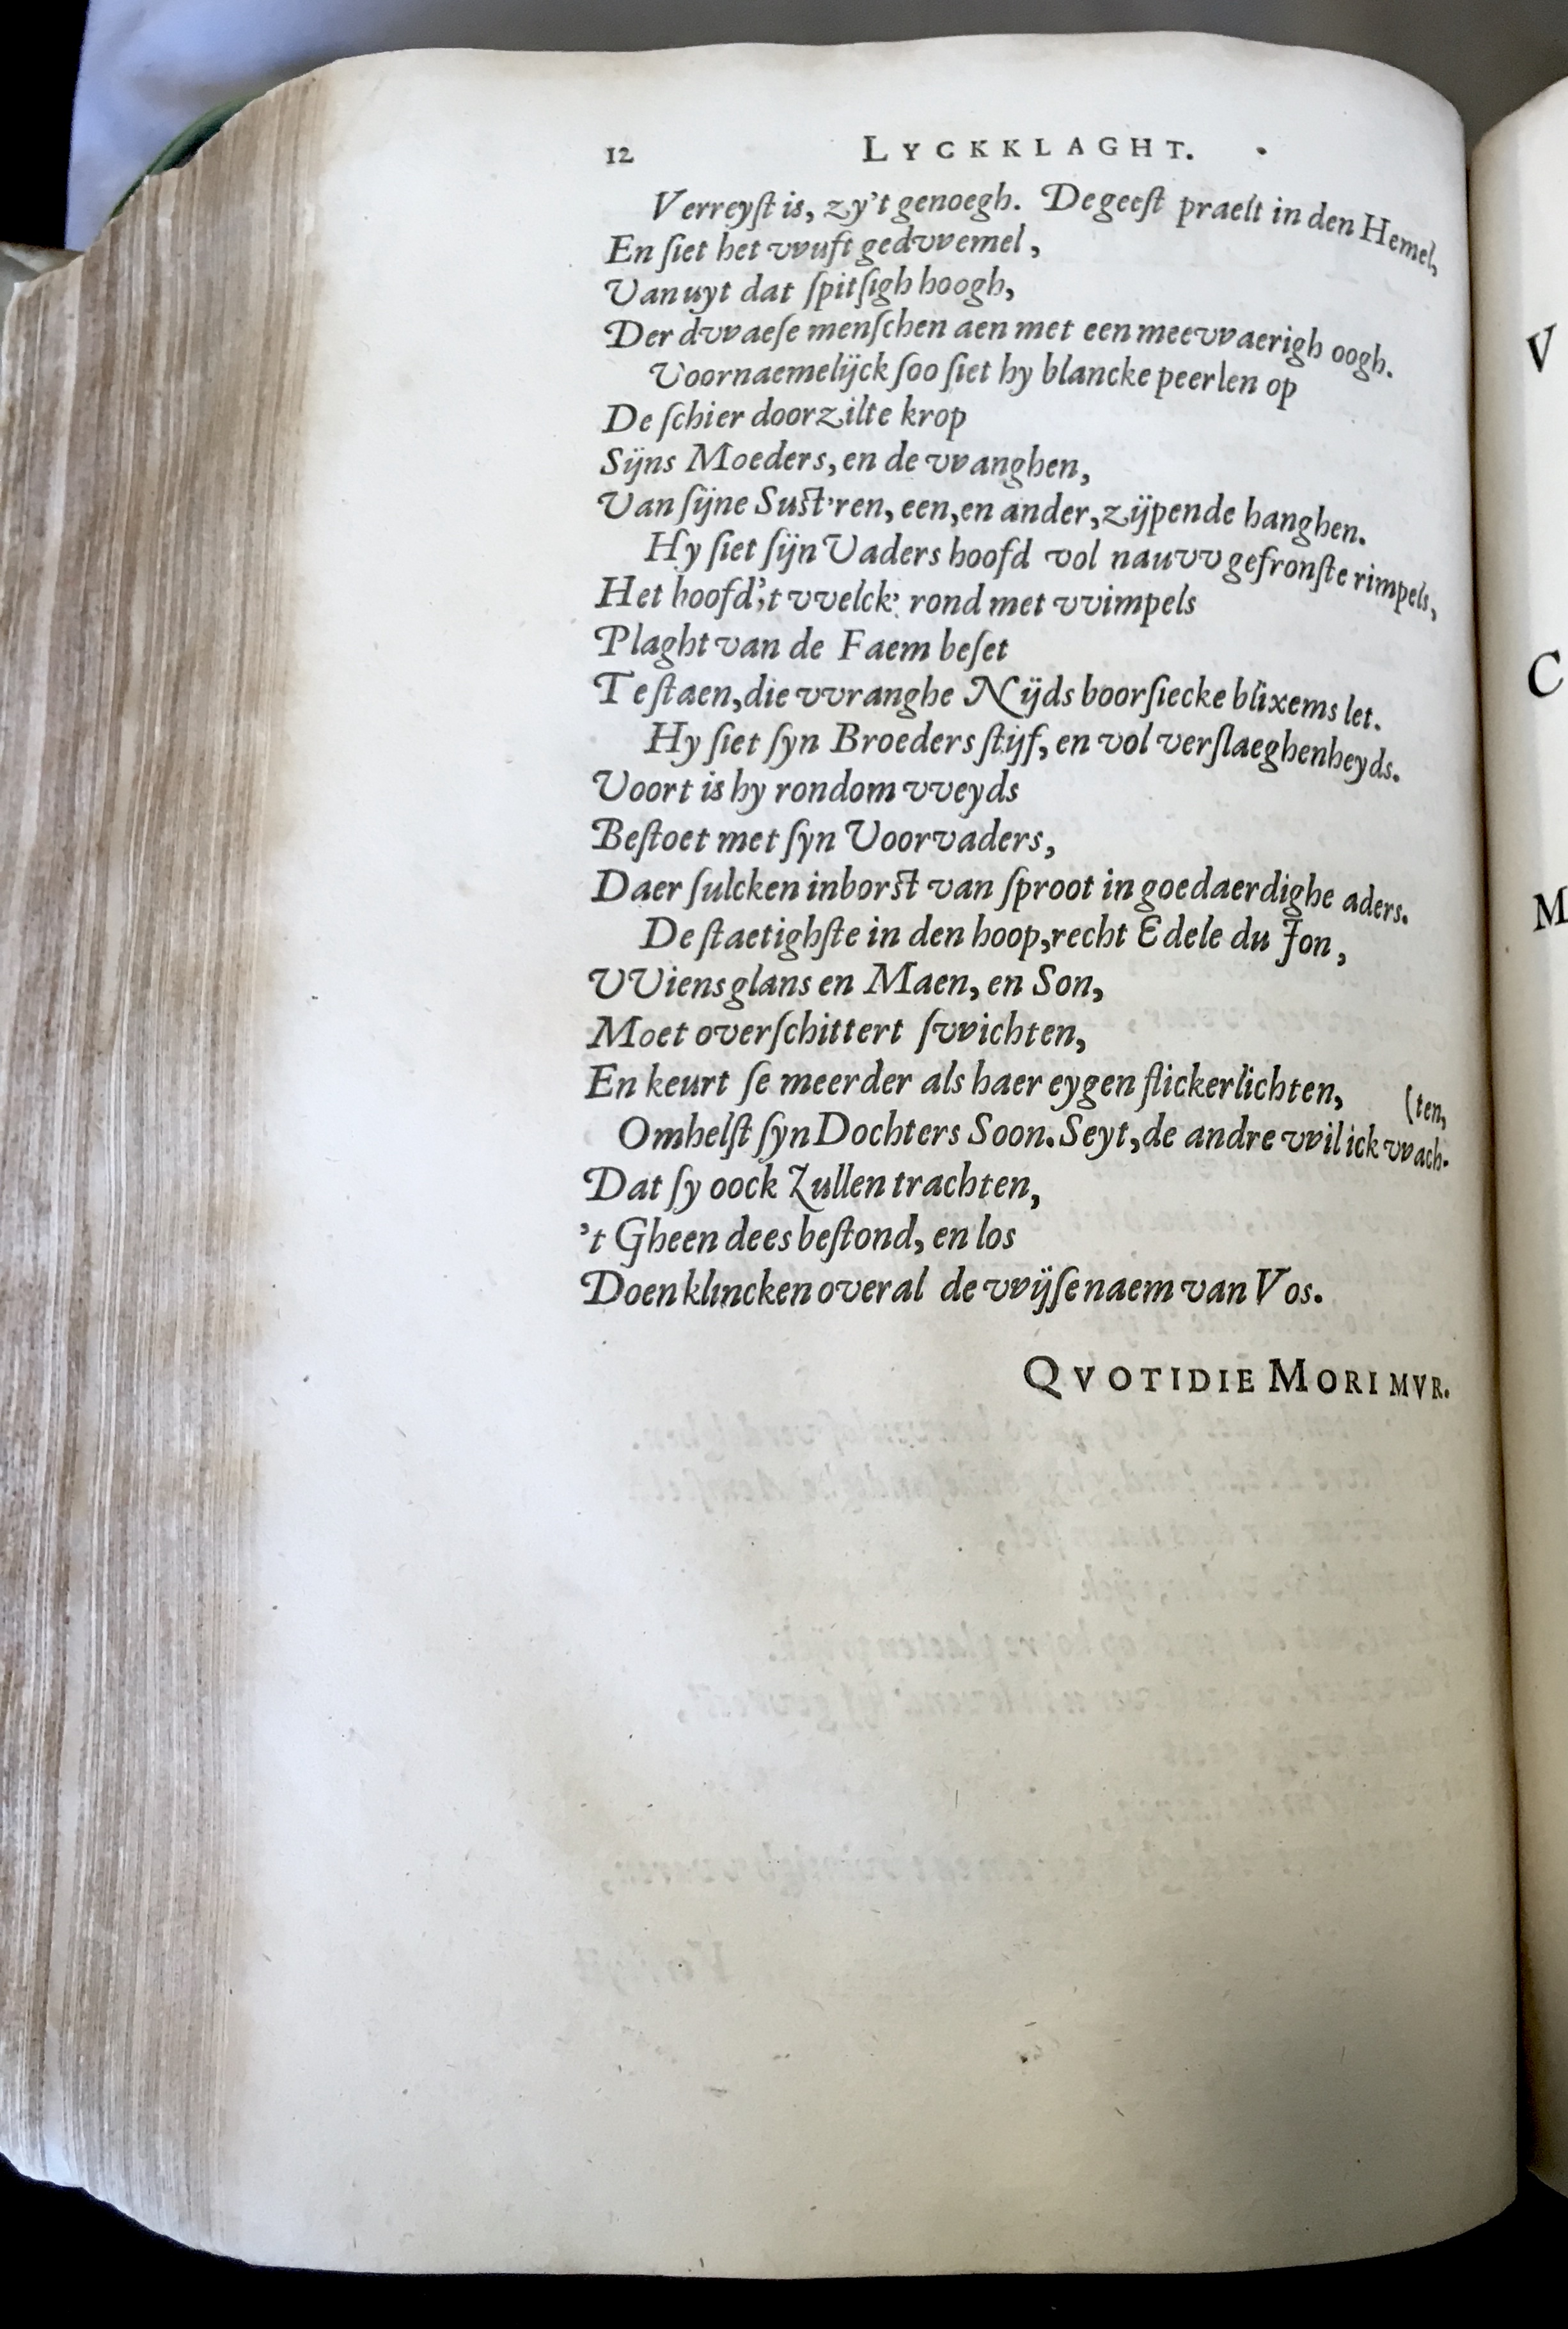 12 LYCKKLAGHT.
Verreyſt is, zy't genoegh. De geeſt praelt in den Hemel,
En ſiet het vvuft gedvvemel,
Van uyt dat ſpitſigh hoogh,
Der dvvaeſe menſchen aen met een meevvaerigh oogh.
Voornaemelijck ſoo ſiet hy blancke peerlen op
De ſchier doorzilte krop
Sijns Moeders, en de vvanghen,
Van ſijne Suſt'ren, een, en ander, zijpende hanghen.
Hy ſiet ſijn Vaders hoofd vol nauvv gefronſte rimpels,
Het hoofd, 't vvelck rond met vvimpels
Plaght van de Faem beſet
Te ſtaen, die vvranghe Nijds boorſiecke blixems let.
Hy ſiet ſyn Broeders ſtijf, en vol verſlaeghenheyds.
Voort is hy rondom vveyds
Beſtoet met ſyn Voorvaders,
Daer ſulcken inborſt van ſproot in goedaerdighe aders.
De ſtaetighſte in den hoop, recht Edele du Jon,
VViens glans en Maen, en Son,
Moet overſchittert ſvvichten,
En keurt ſe meerder als haer eygen flickerlichten,
(ten,
Omhelſt ſyn Dochters Soon. Seyt, de andre vvil ick vvach-
Dat ſy oock zullen trachten,
't Gheen dees beſtond, en los
Doen klincken overal de vvijſe naem van Vos.
QVOTIDIE MORIMVR.
V
C
M